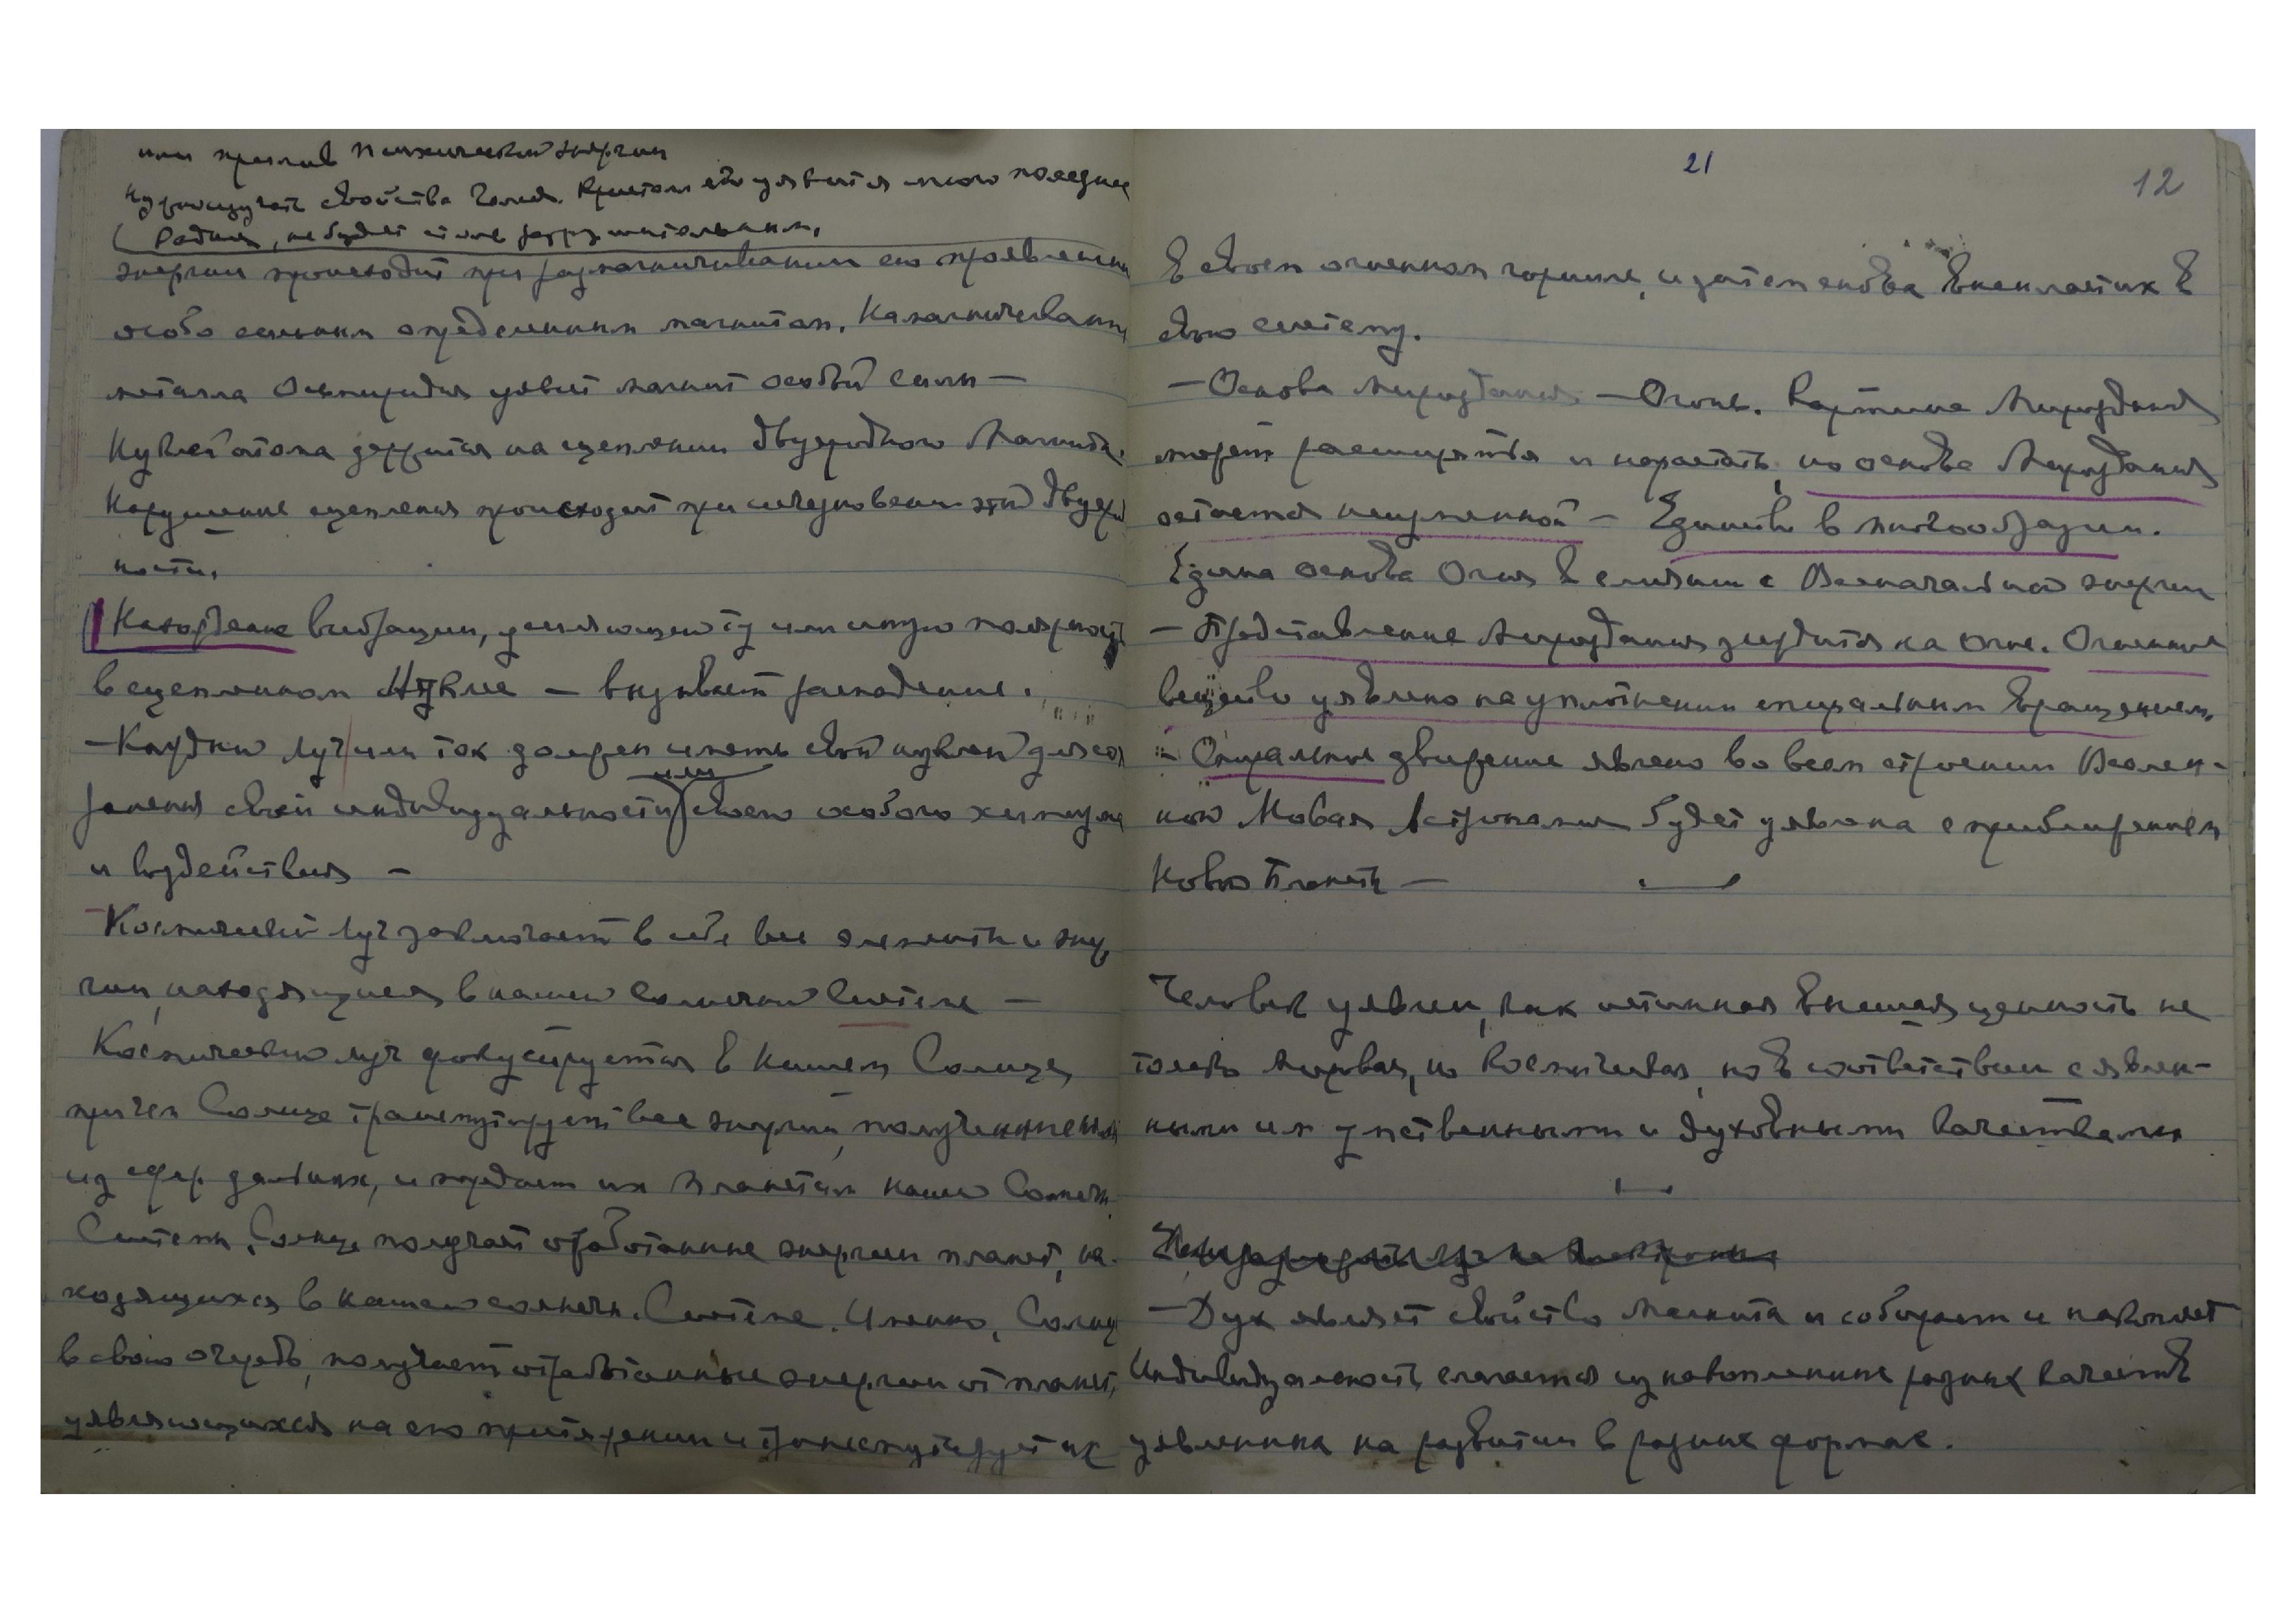 или прилив психической энергии
Нужно изучать свойства Гелия. Кристалл его уявится много полезнее
Радия, не будет столь разрушительным.
энергии происходит при размагничивании его проявлением
особо сильным определенным магнитом. Намагничивание
металла Осмиридия уявит магнит особой силы —
Нуклей атома держится на сцеплении двуродного Магнита.
Нарушение сцепления происходит при исчезновении этой двурод
ности.
Нахождение вибрации, усиляющей ту или иную полярность
в сцепленном Нуклее — вызывает распадение.
— Каждый луч или ток должен иметь свой нуклей для со
хранения своей индивидуальности или своего особого химизма
и воздействия —
Космический луч заключает в себе все элементы и энер
гии, находящиеся в нашей Солнечной Системе —
Космический луч фокусируется в нашем Солнце,
причем Солнце трансмутирует все энергии, полученные им
из сфер дальних, и передает их планетам нашей Солнечн.
Системы. Солнце получает отработанные энергии планет, на
ходящихся в нашей солнечн. Системе. Именно, Солнце
в свою очередь, получает отработанные энергии от планет,
уявляющихся на его притяжении и трансмутирует их
21
12
в своем огненном горниле, и затем снова вкеплет их в
свою систему.
— Основа Мироздания — Огонь. Картина Мироздания
может расширяться и нарастать, но основа Мироздания
остается неизменной — Единство в многообразии.
Едина основа Огня в слиянии с Всеначальной энергии
— Представление Мироздания зиждется на Огне. Огненное
вещество уявлено на уплотнении спиральным вращением.
— Спиральное движение явлено во всем строении Вселен-
ной Новая Астрономия будет уявлена с приближением
Новой Планеты —
Человек уявлен, как истинная высшая ценность не
только мировая, но Космическая, но в соответствии с явлен-
ными им умственными и духовными качествами
— Дух являет свойство Магнита и собирает и накопляет
Индивидуальность слагается из накопления разных качеств
уявленных на развитии в разных формах.